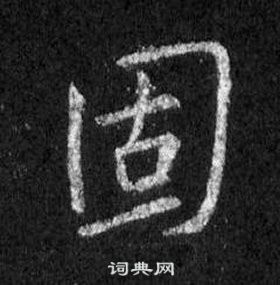 固
词典网